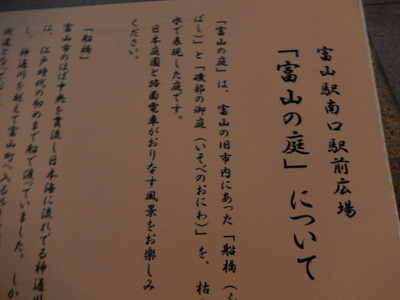 富山駅南口駅前広場
「富山の庭」について
「富山の庭」は、富山の旧市内にあった「船橋（ふ
ばし）」と「磯部の御庭（いそべのおにわ）」を、枯
水で表現した庭です。
日本庭園と路面電車がおりなす風景をお楽しみ
ください。
「船橋」
富山市のほぼ中央を貫流し日本海に流れでる神通川
は、江戸時代の初めまで船で渡っていました。し
し、神通川を越えて富山町へ入るル